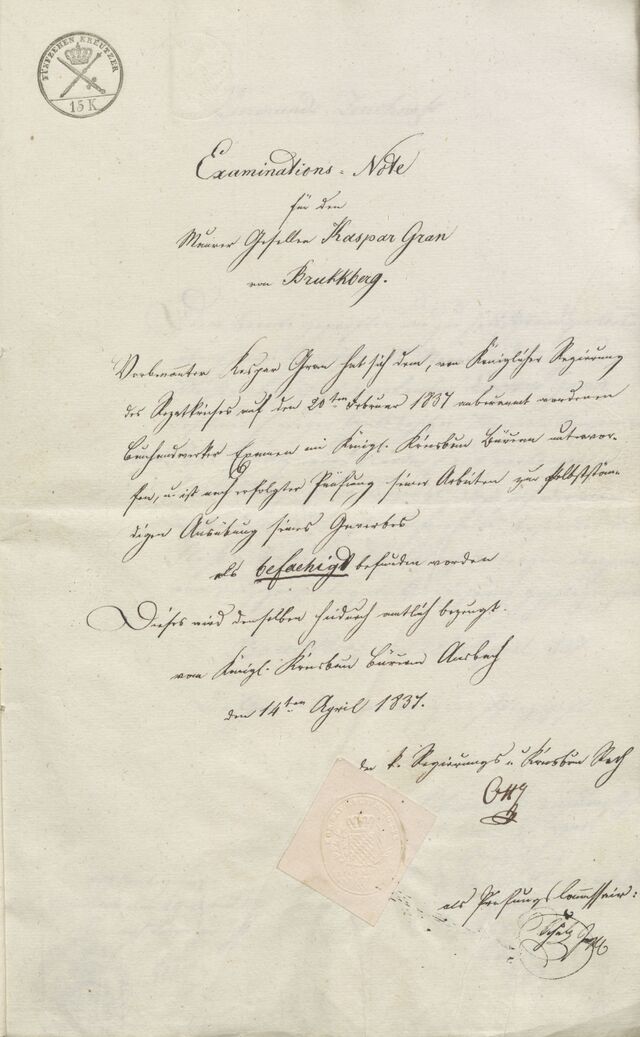 FÜNFZEHEN KREUTZER
15 K
Examinations-Note
für den
Maurer Gesellen Kaspar Gran
von Brukkberg.
Vorbenannter Kaspar Gran hat sich dem, von Königlicher Regierung
des Rezatkreises auf den 20ten Februar 1837 anberaumt wordenen
Bauhandwerker Examen im Königl. Kreisbau Büreau unterwor-
fen, u. ist nach erfolgter Prüfung seiner Arbeiten zur selbststän-
digen Ausübung seines Gewerbes
als befaehigt befunden worden
Dieses wird demselben hiedurch amtlich bezeugt.
vom Königl. Kreisbau Büreau Ansbach
den 14ten April 1837.
der k. Regierungs u Kreisbau Rath
als Prüfungs Commissair: